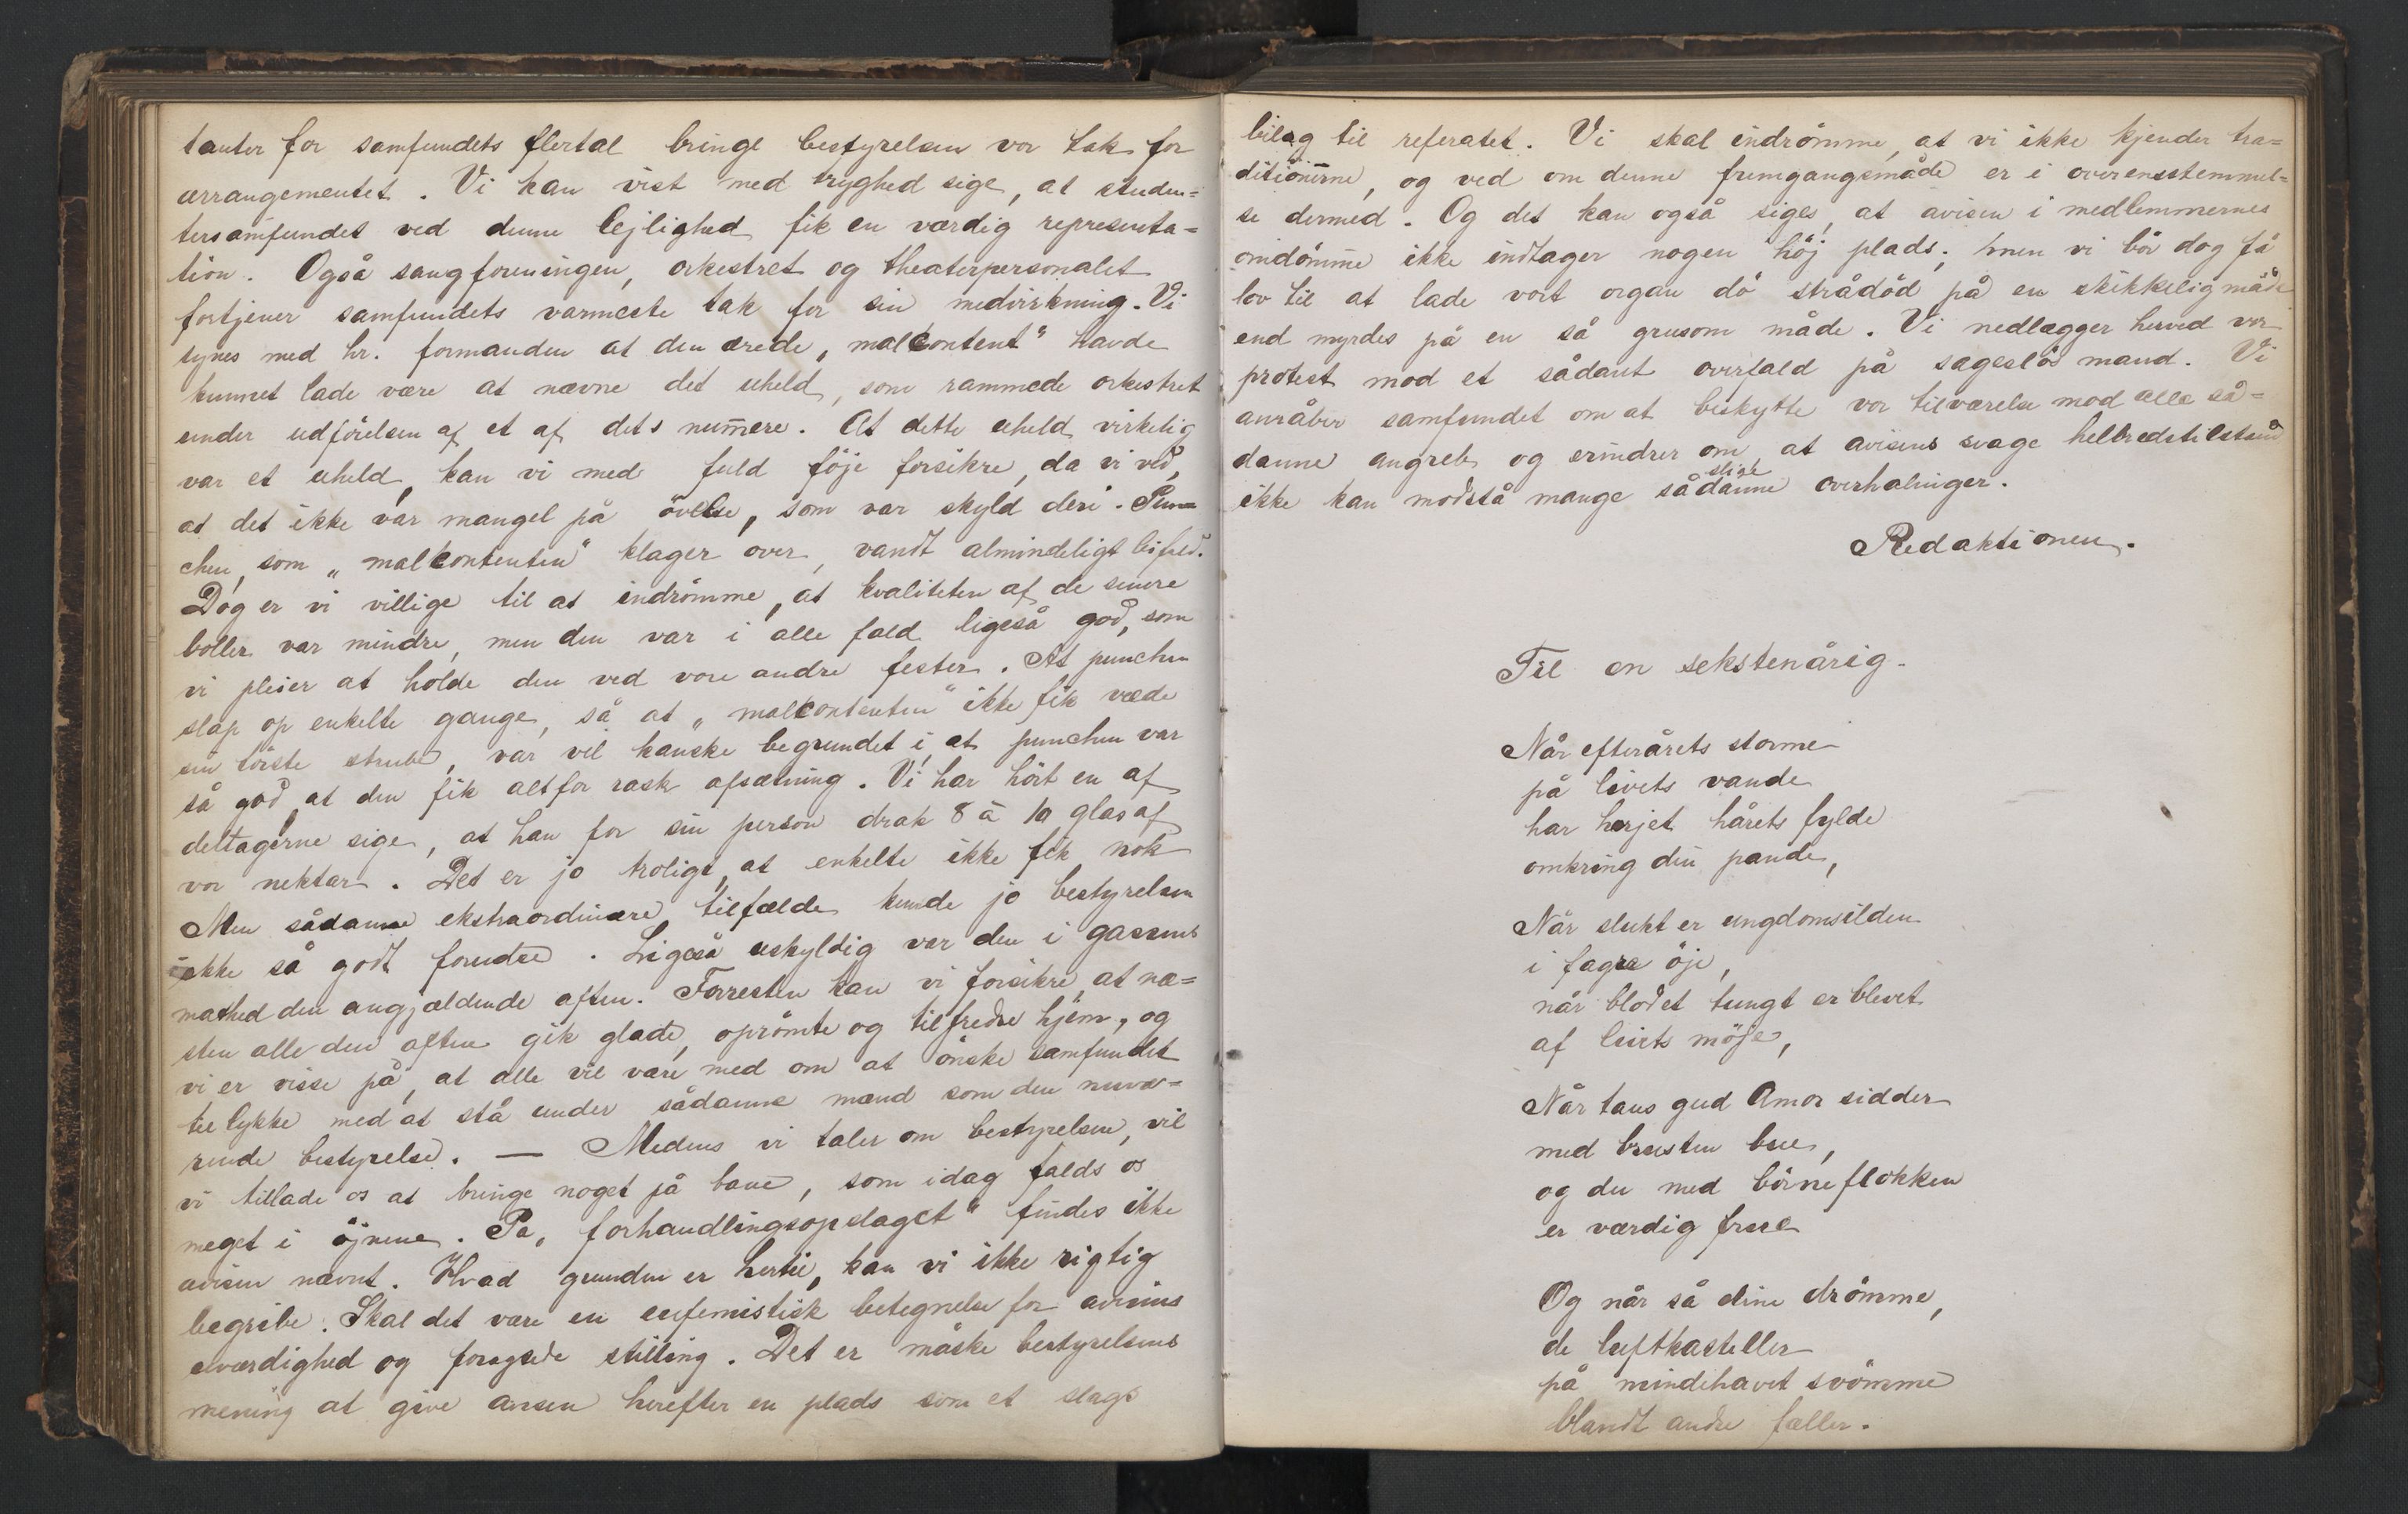 tanter for samfundets flertal bringe bestyrelsen vor tak for
arrangementet. Vi kan vist med tryghed sige, at studen=
tersamfundet ved denne lejlighed fik en værdig representa=
tion. Også sangforeningen, orkestret og theaterpersonalet
fortjener samfundets varmeste tak for sin medvirkning. Vi
synes med hr. formanden at den ærede „malkontent" havde
kunnet lade være at nævne det uheld, som rammede orkestret
under udförelsen af et af dets numere. At dette uheld virkelig
var et uheld, kan vi med fuld föje forsikre, da vi ved,
at det ikke var mangel på övelse, som var skyld deri. Pun=
chen, som „malkontenten" klager over, vandt almindeligt bifald.
Dog er vi villige til at indrömme, at kvaliteten af de senere
boller var mindre, men den var i alle fald ligeså god, som
vi pleier at holde den ved vore andre fester. At punchen
slap op enkelte gange, så at „malkontenten" ikke fik væde
sin törste strube, var vel kanske begrundet i, at punchen var
så god at den fik altfor rask afsætning. Vi har hört en af
deltagerne sige, at han for sin person drak 8 à 10 glas af
vor nektar. Det er jo troligt, at enkelte ikke fik nok
Men sådanne ekstraordinære tilfælde kunde jo bestyrelsen
ikke så godt forudse. Ligeså uskyldig var den i gassens
mathed den angjældende aften. Forresten kan vi forsikre, at næ=
sten alle den aften gik glade, oprömte og tilfredse hjem, og
vi er visse på, at alle vil være med om at önske samfundet
til lykke med at stå under sådanne mænd som den nuvæ=
rende bestyrelse. — Medens vi taler om bestyrelsen, vil
vi tillade os at bringe noget på bane, som idag faldt os
meget i öjnene. På „forhandlingsopslaget" findes ikke
avisen nævnt. Hvad grunden er hertil, kan vi ikke rigtig
begribe. Skal det være en eufemistisk betegnelse for avisens
uværdighed og foragtede stilling. Det er måske bestyrelsens
mening at give avisen herefter en plads som et slags
bilag til referatet. Vi skal indrömme, at vi ikke kjender tra=
ditionerne, og ved om denne fremgangsmåde er i overensstemmel=
se dermed. Og det kan også siges, at avisen i medlemmernes
omdömme ikke indtager nogen höj plads; men vi bör dog få
lov til at lade vort organ dö strådöd på en skikkelig måde
end myrdes på en så grusom måde. Vi nedlægger herved vor
protest mod et sådant overfald på sageslös mand. Vi
anråber samfundet om at beskytte vor tilværelse mod alle så=
danne angreb og erindrer om, at avisens svage helbredstilstand
ikke kan modstå mange sådanne slige overhalninger.
Redaktionen.
Til en sekstenårig.
Når efterårets storme
på livets vande
har herjet hårets fylde
omkring din pande,
Når slukt er ungdomsilden
i fagre öje,
når blodet tungt er blevet
af livets möje,
Når taus gud Amor sidder
med brusten bue,
og du med börneflokken
er værdig frue
Og når så dine drömme,
de luftkasteller
på mindehavet svömme
blandt andre fæller.